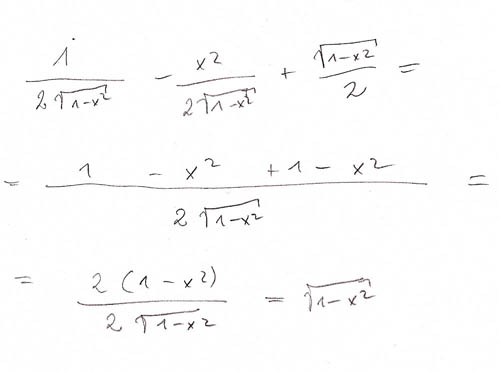 1/(2√(1-x²)) - x²/(2√(1-x²)) + √(1-x²)/2 =
= (1 - x² + 1 - x²)/(2√(1-x²)) =
= 2(1-x²)/(2√(1-x²)) = √(1-x²)